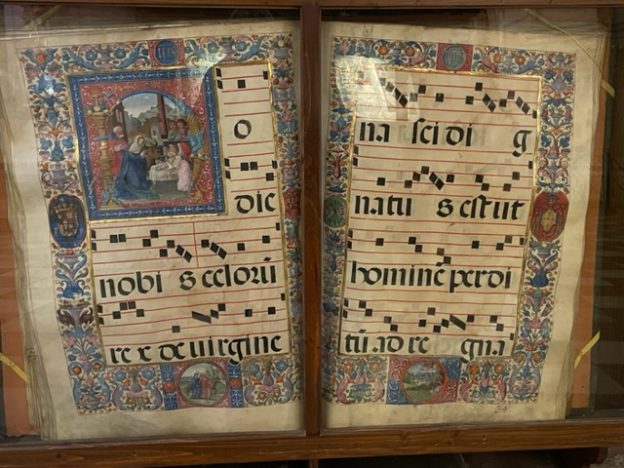 o
die
nobi s celorū
re x de uirgine
na sci di g
natu s est ut
hominē perdi
tū ad re gna